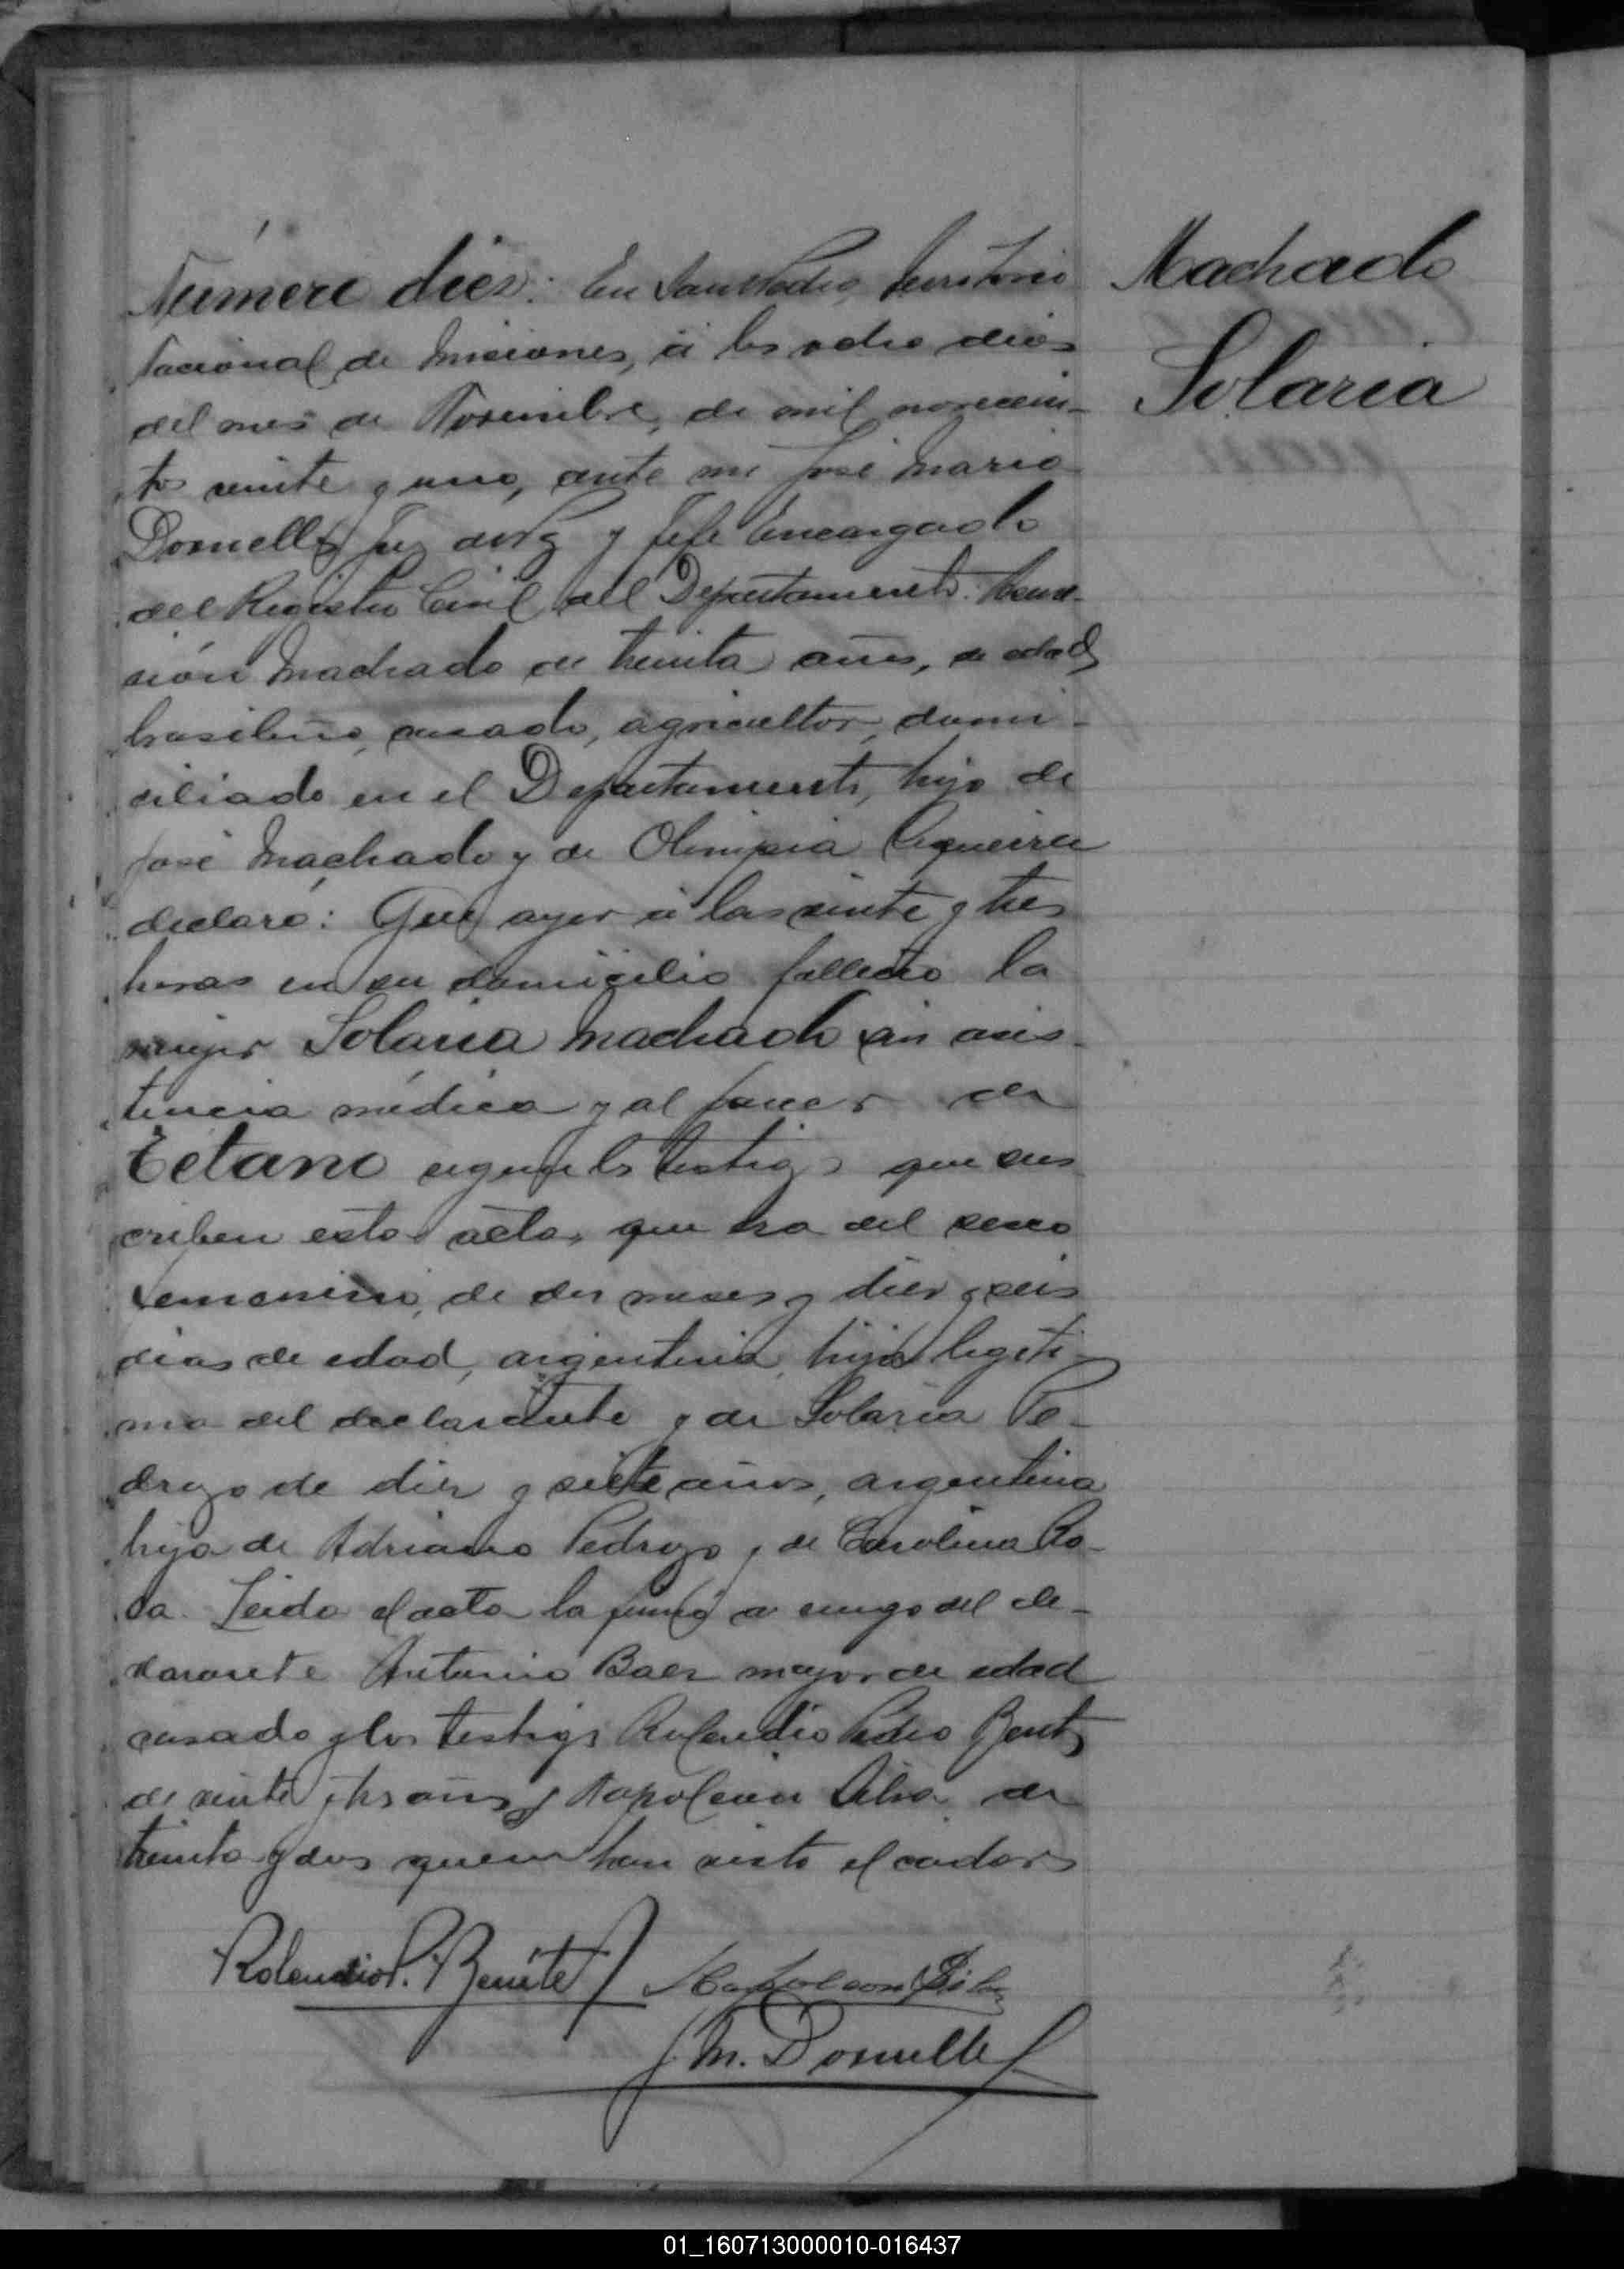 Número diez: En San Pedro, Territorio
Nacional de Misiones, á los ocho dias
del mes de Noviembre, de mil novecien-
tos veinte y uno, ante mi José Maria
Dornelles Juez de Paz y Jefe Encargado
del Registro Civil del Departamento.
sión Machado de treinta años, de edad
brasileño, casado, agricultor, domi-
ciliado en el Departamento, hijo de
José Machado y de Olimpia Siqueira
declaró: Que ayer á las veinte y tres
horas en su domicilio falleció la
mujer Solaria Machado sin asis-
tencia médica y al parecer de
Tétano segun los testigos que sus
criben esta acta, que era del sexo
femenino, de dos meses y diez y seis
dias de edad, argentina, hija legíti-
ma del declarante y de Solaria Pe-
drozo de diez y siete años, argentina
hija de Adriano Pedrozo y de Carolina Ro-
sa. Leida el acta la firmó a ruego del de-
clarante Antonio Baez mayor de edad
casado y los testigos Pedro Benitez
de veinte y tres años y Napoleón Silva de
treinta y dos quienes han visto el cadaver
Rolendio P. Benitez Napoleon Silva
J. M. Dornelles
Machado
Solaria
01_160713000010-016437